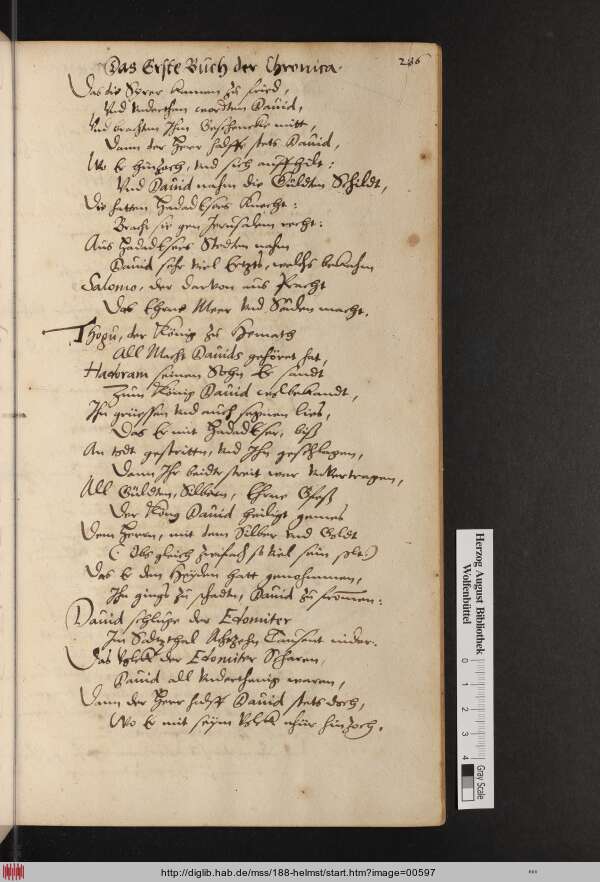 Das Erste Buch der Chronica.
286
Das die Syrer kamen zu fried,
Vnd vnderthan wordten Dauid,
Vnd brachten Ihm Geschencke mitt,
Dann der Herr halffe stets Dauid,
Wo Er hinzoch, vnd sich auffhilt:
Vnd Dauid nahm die Güldten Schildt,
Die hatten HadadEsers Knecht:
Bracht sie gen Jerusalem recht:
Aus HadadEsers Stedten nahm
Dauid sehr viel Ertzts, welchs bekahm
Salomo, der daruon aus Pracht
Das Ehrne Meer vnd Säulen macht.
Thogu, der König zu Hemath
All Macht Dauids gehöret hat,
Hadoram seinen Sohn Er sandt
Zum König Dauid wolbekandt,
Ihn grüessen vnd auch segnen lies,
Das Er mit HadadEser, biß
An todt gestritten, vnd Ihn geschlagen,
Dann Ihr beider streit war vnuertragen,
All Güldten, Silbern, Ehrne Gfeß
Der König Dauid heiligt gemes
Dem Herrn, mit dem Silber vnd Goldt
(Obs gleich zwifach so viel sein solt)
Das Er den Heyden hatt genohmmen,
Ihn gings zu schadten, Dauid zu frommen:
Dauid schluge der Edomiter
Im Saltzthal Achtzehn Tausent nider.
Das Volck der Edomiter Scharen,
Dauid all vnderthenig waren,
Dann der Herr halff Dauid stets doch,
Wo Er mit seim Volck nhur hinzoch.
Herzog August Bibliothek
Wolfenbüttel
0 1 2 3 4
Gray Scale
http://diglib.hab.de/mss/188-helmst/start.htm?image=00597